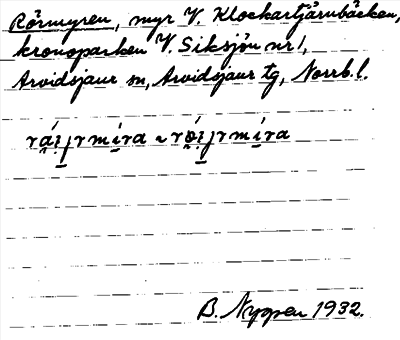 Rörmyren, myr V. Klockartjärnbäcken,
kronoparken V. Siksjön nr 1,
Arvidsjaur sn, Arvidsjaur tg, Norrb. l.
B. Nygren 1932.